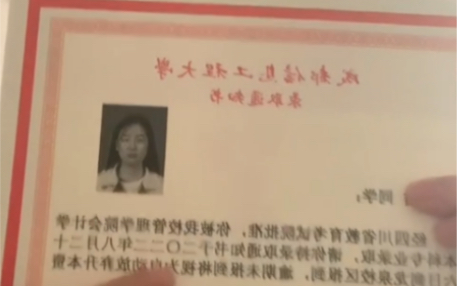 成都信息工程大学
录取通知书
同学:
经四川省教育考试院批准,你被我校管理学院会计学
本科专业录取,请你持录取通知书于二〇二二年八月二十
日到龙泉校区报到,逾期未报到将视为自动放弃升本